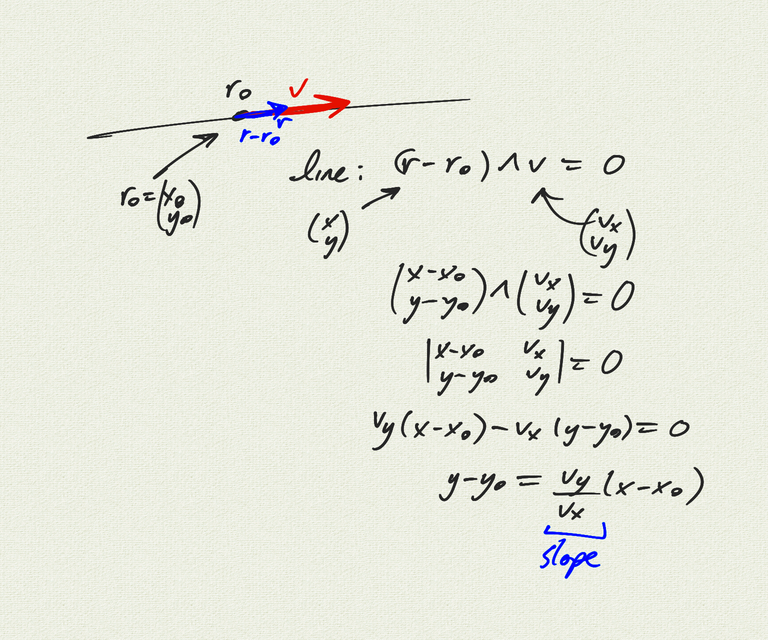 r₀ v
r
r-r₀
line: (r-r₀)∧v = 0
r₀=(x₀
y₀)
(x
y)
(vx
vy)
(x-x₀
y-y₀)∧(vx
vy)=0
|x-x₀ vx
y-y₀ vy|=0
vy(x-x₀)-vx(y-y₀)=0
y-y₀ = vy/vx (x-x₀)
slope